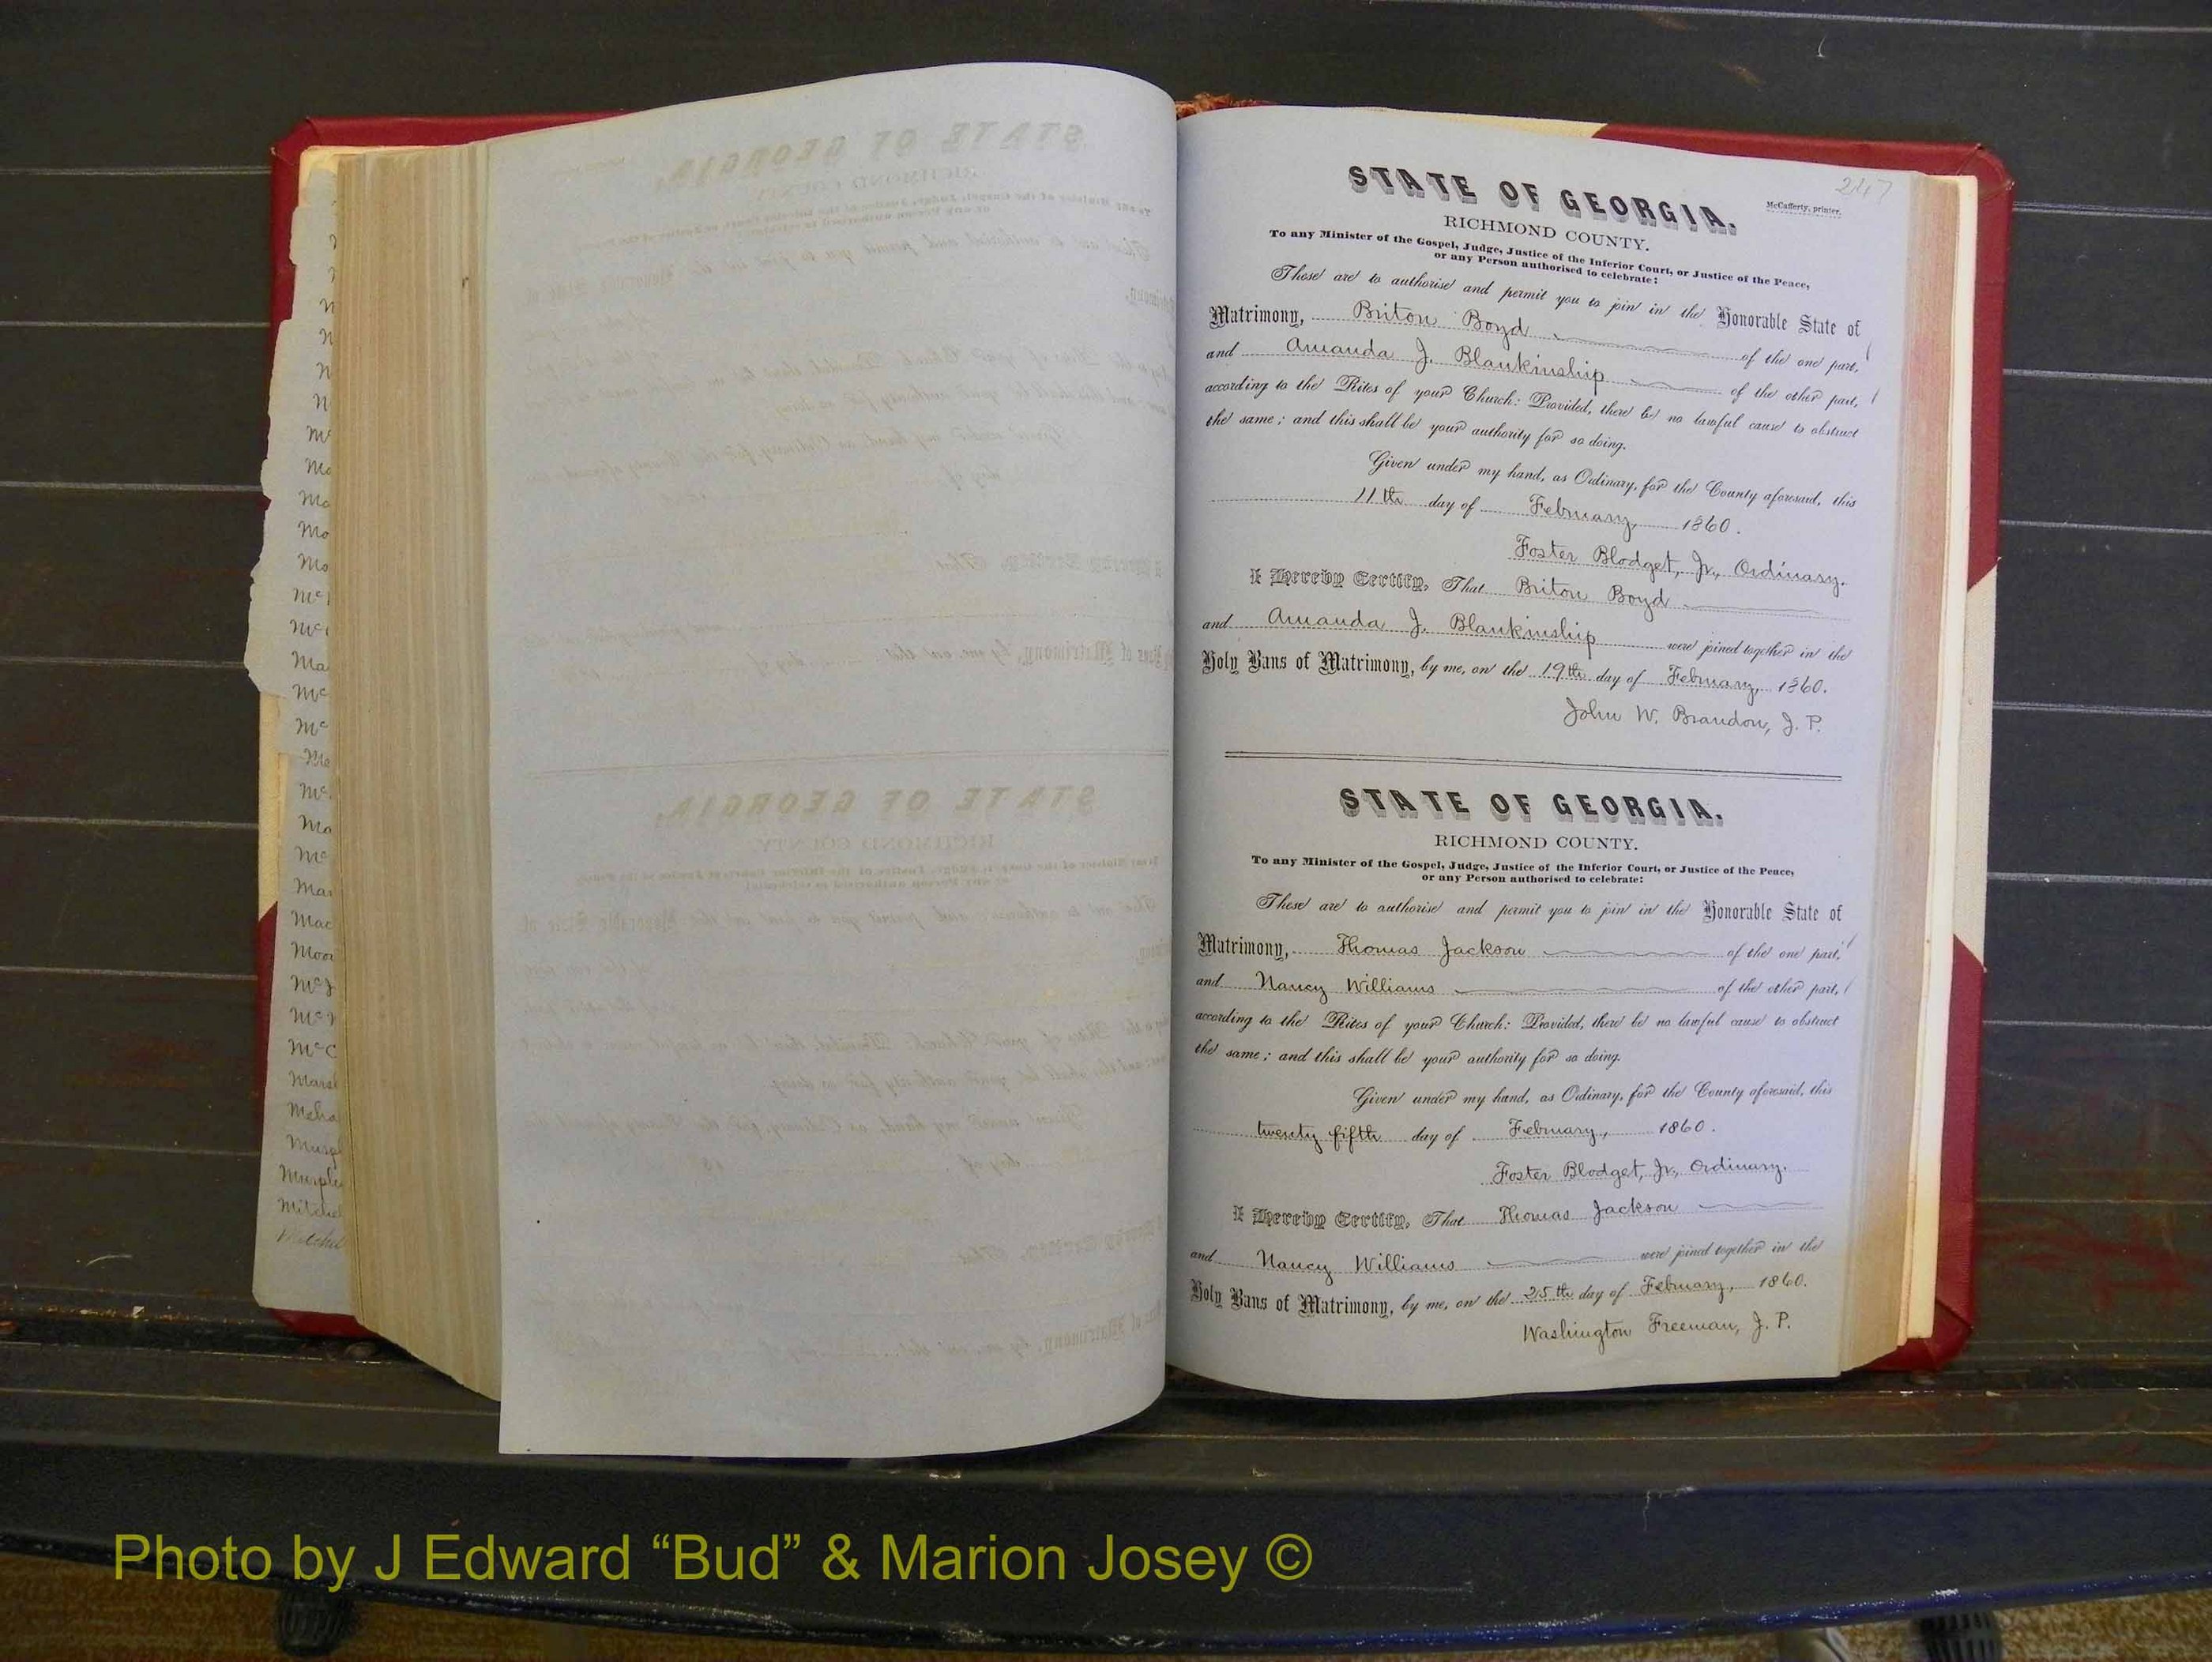 m
m
n
n
n
n
Mc
Mc
Mc
Mo
Mo
Mc
Mc
Ma
Mc
Mc
Me
Mc
Ma
Mc
Mar
Mac
Moor
McC
Mars
Meha
Murp
Murph
Mitche
Mitchel
247
STATE OF GEORGIA.
McCafferty, printer.
RICHMOND COUNTY.
To any Minister of the Gospel, Judge, Justice of the Inferior Court, or Justice of the Peace,
or any Person authorised to celebrate:
These are to authorise and permit you to join in the Honorable State of
Matrimony, Briton Boyd of the one part,
and Amanda J. Blankinship of the other part,
according to the Rites of your Church: Provided, there be no lawful cause to obstruct
the same; and this shall be your authority for so doing.
Given under my hand, as Ordinary, for the County aforesaid, this
11th day of February, 1860.
Foster Blodget, Jr., Ordinary.
I Hereby Certify, That Briton Boyd
and Amanda J. Blankinship were joined together in the
Holy Bans of Matrimony, by me, on the 19th day of February, 1860.
John W. Brandon, J. P.
STATE OF GEORGIA.
RICHMOND COUNTY.
To any Minister of the Gospel, Judge, Justice of the Inferior Court, or Justice of the Peace,
or any Person authorised to celebrate:
These are to authorise and permit you to join in the Honorable State of
Matrimony, Thomas Jackson of the one part,
and Nancy Williams of the other part,
according to the Rites of your Church: Provided, there be no lawful cause to obstruct
the same; and this shall be your authority for so doing.
Given under my hand, as Ordinary, for the County aforesaid, this
twenty fifth day of February, 1860.
Foster Blodget, Jr., Ordinary.
I Hereby Certify, That Thomas Jackson
and Nancy Williams were joined together in the
Holy Bans of Matrimony, by me, on the 25th day of February, 1860.
Washington Freeman, J. P.
Photo by J Edward “Bud” & Marion Josey ©